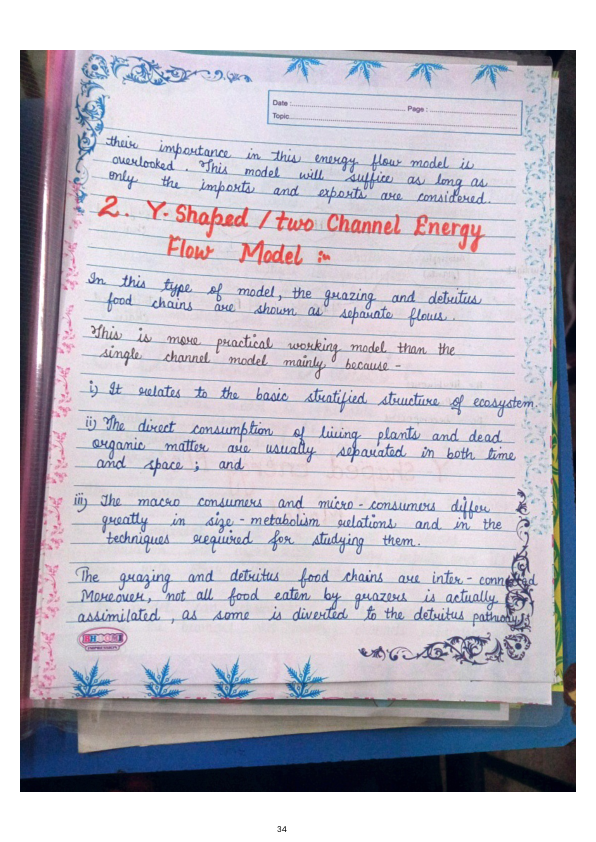 Date :
Page :
Topic
their importance in this energy flow model is
overlooked. This model will suffice as long as
only the imports and exports are considered.
2. Y-Shaped / two Channel Energy
Flow Model :-
In this type of model, the grazing and detritus
food chains are shown as separate flows.
This is more practical working model than the
single channel model mainly because -
i) It relates to the basic stratified structure of ecosystem.
ii) The direct consumption of living plants and dead
organic matter are usually separated in both time
and space ; and
iii) The macro consumers and micro - consumers differ
greatly in size - metabolism relations and in the
techniques required for studying them.
The grazing and detritus food chains are inter - connected
Moreover, not all food eaten by grazers is actually
assimilated, as some is diverted to the detritus pathway.
34